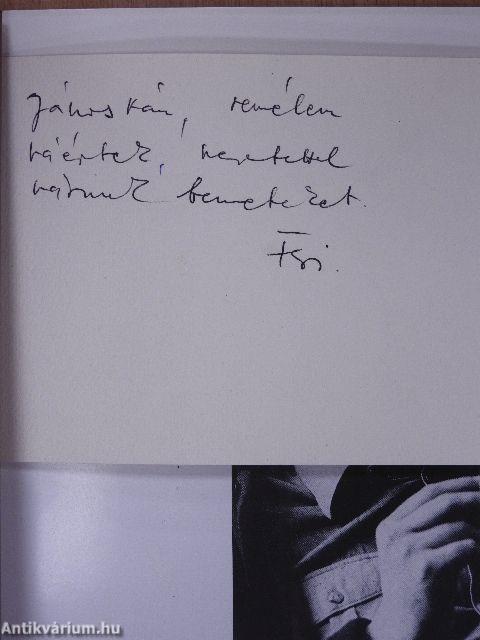 Jánoskám, remélem
ráértek, szeretettel
várunk benneteket.
Feri.
Antikvárium.hu